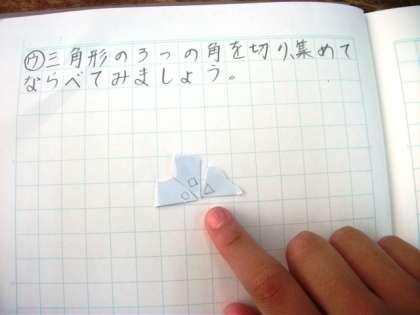 ㋒三角形の3つの角を切り、集めて
ならべてみましょう。